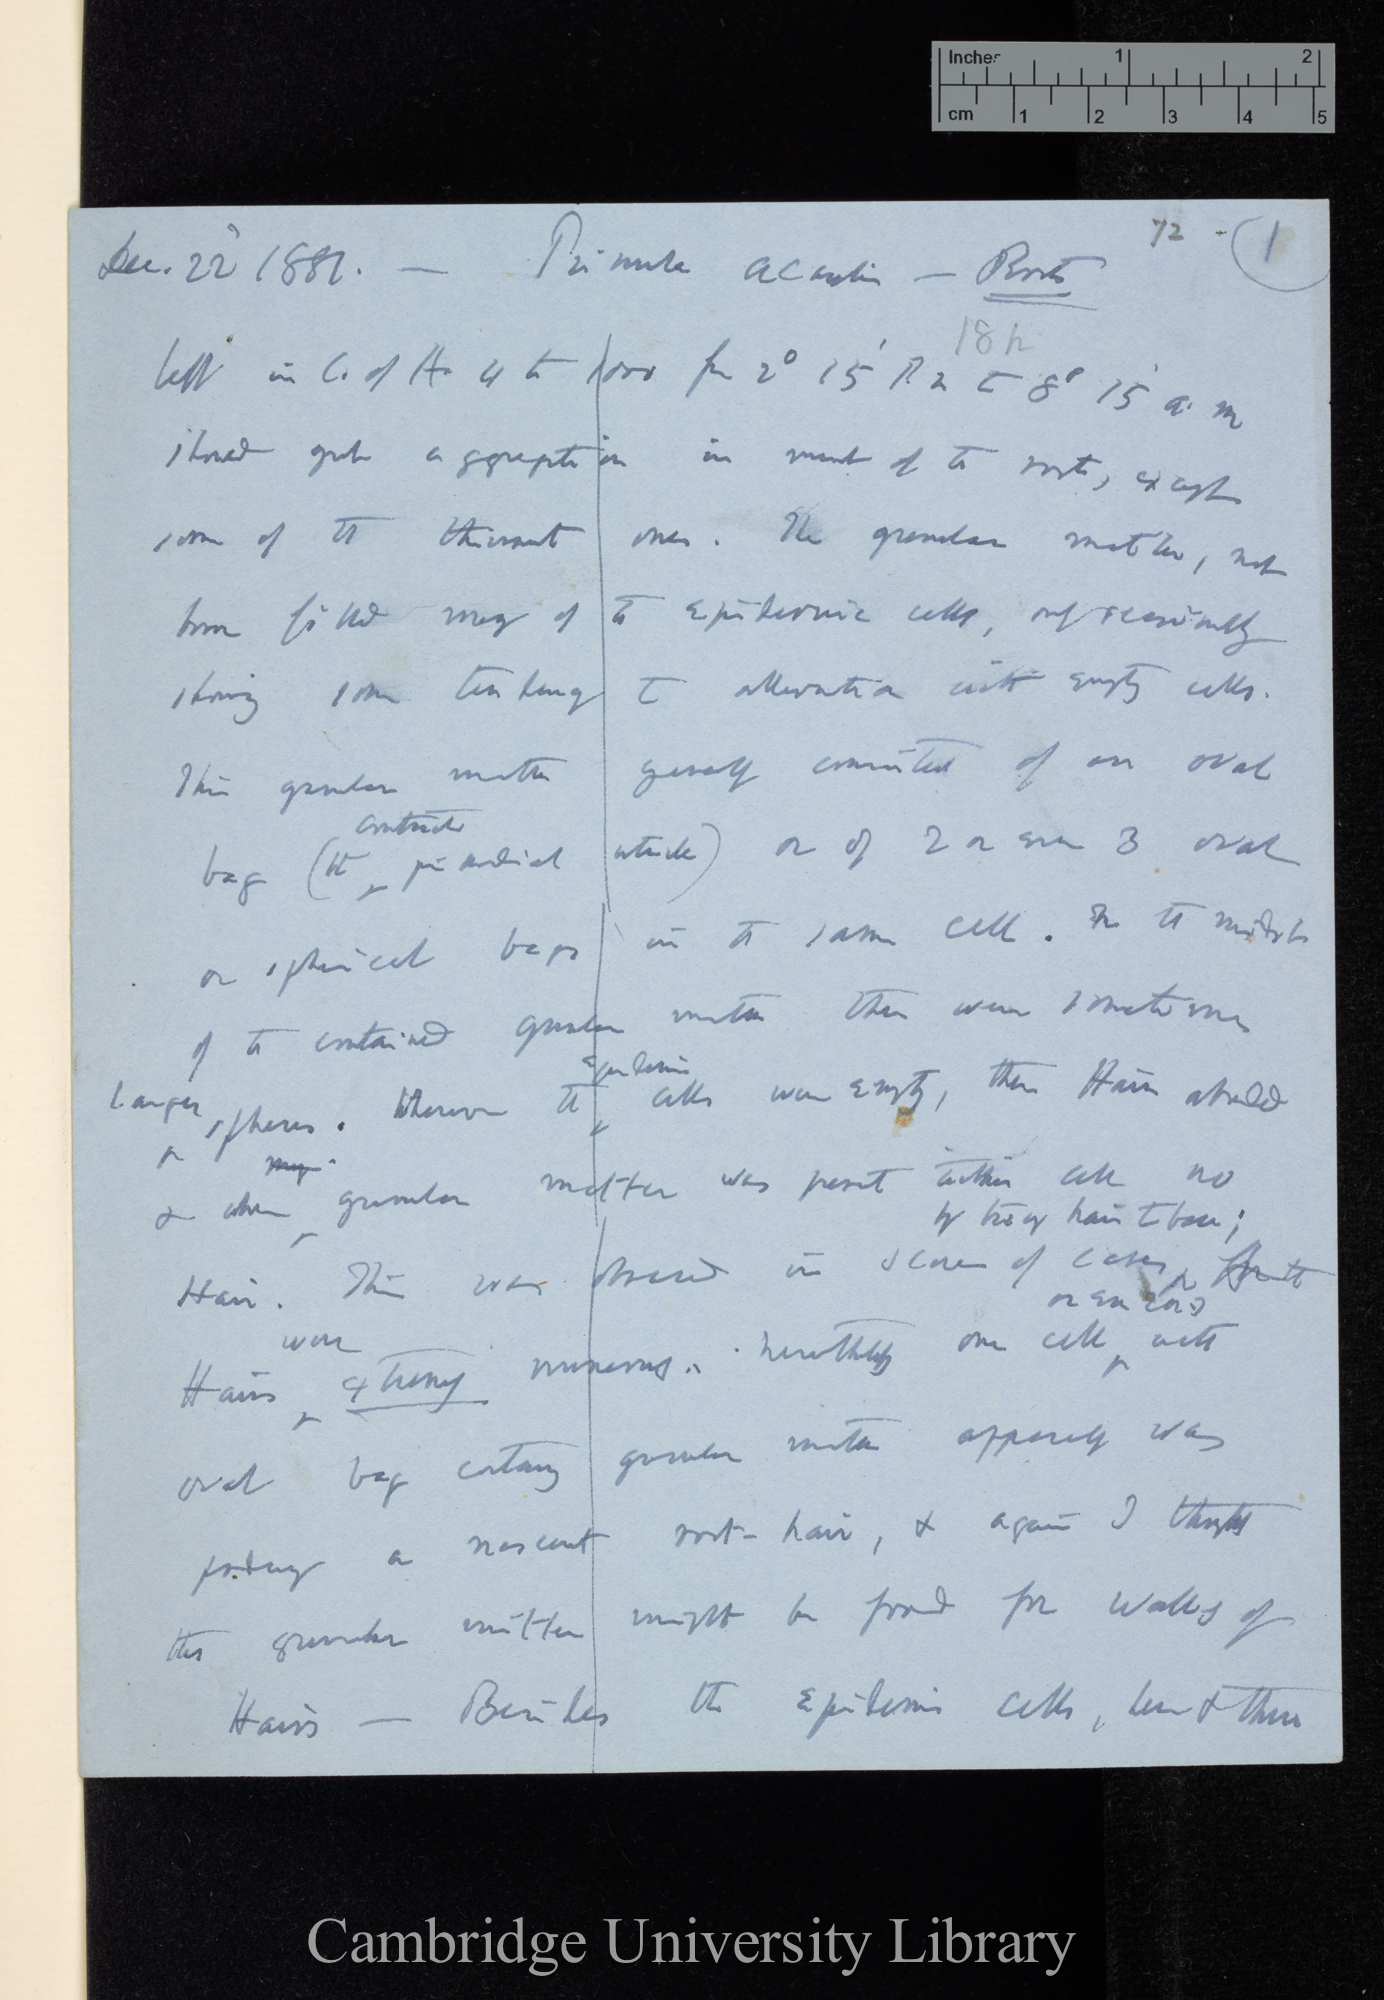 Inches 1 2
cm 1 2 3 4 5
72 1
Dec. 22d 1881. — Primula acaulis — Roots
18h
left in C. of A. 4 to 1000 for 2° 15' P.M to 8° 15' a.m
showed good aggregation in most of the roots, except
some of the thinnest ones. The granular matter, not
brown filled many of the epidermic cells, only occasionally
showing some tendency to alternation with empty cells.
This granular matter generally consisted of an oval
contracted
bag (the primordial utricle) or of 2 or even 3 oval
or spherical bags in the same cell. In the midst
of the contained granular matter there were sometimes
Epidermic
larger spheres. Wherever the cells were empty, there Hairs abounded
& when granular matter was present within cell no
by tracing hair to base;
Hair. This was observed in scores of cases, for the
were or even 2 or 3
Hairs extremely numerous. Nevertheless one cell with
oval bag containing granular matter apparently was
producing a nascent root-hair, & again I thought
this granular matter might be food for walls of
Hairs — Besides the epidermis cells, here & there
Cambridge University Library